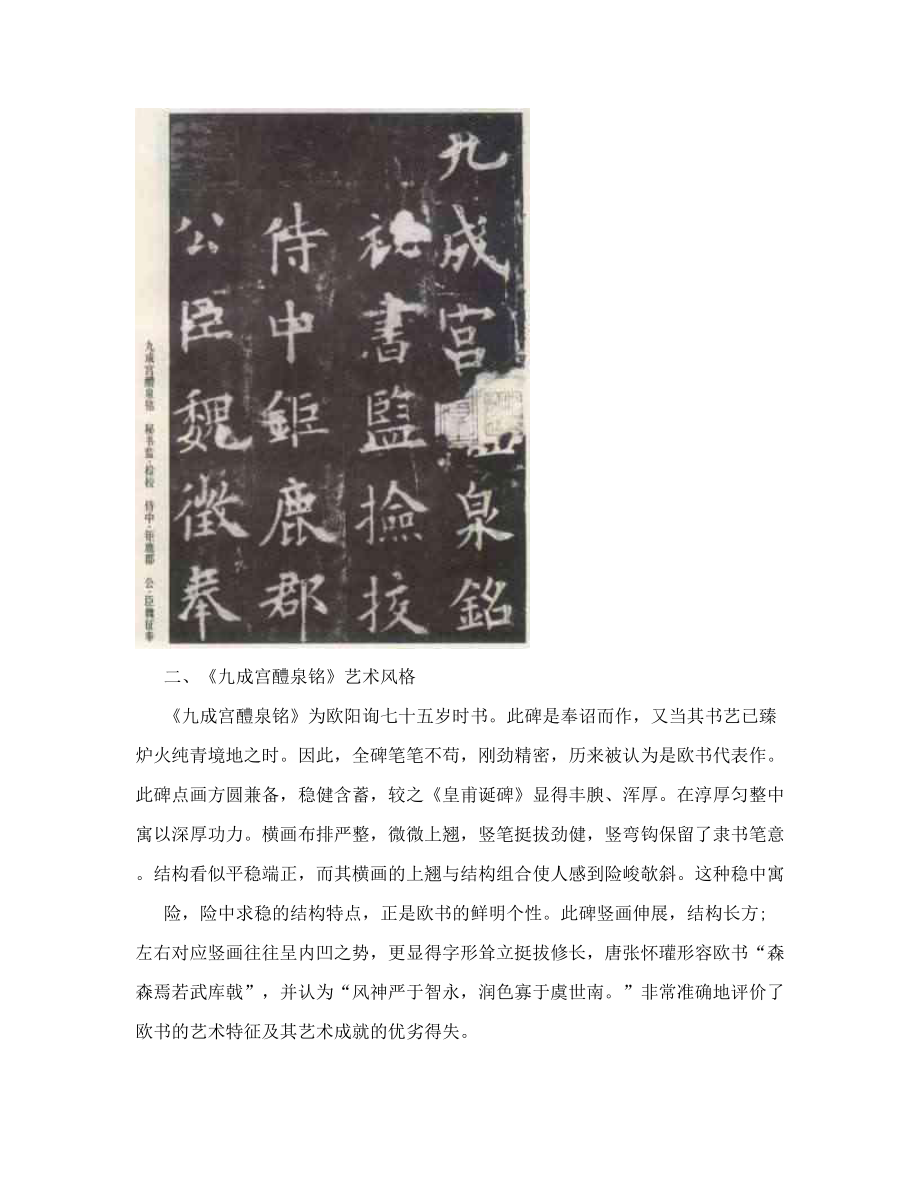 九成宫
泉銘
書監撿挍
侍中鉅鹿郡
公臣魏徵奉
九成宫醴泉铭 秘书监·检校 侍中·钜鹿郡 公·臣魏征奉
二、《九成宫醴泉铭》艺术风格
《九成宫醴泉铭》为欧阳询七十五岁时书。此碑是奉诏而作，又当其书艺已臻
炉火纯青境地之时。因此，全碑笔笔不苟，刚劲精密，历来被认为是欧书代表作。
此碑点画方圆兼备，稳健含蓄，较之《皇甫诞碑》显得丰腴、浑厚。在淳厚匀整中
寓以深厚功力。横画布排严整，微微上翘，竖笔挺拔劲健，竖弯钩保留了隶书笔意
。结构看似平稳端正，而其横画的上翘与结构组合使人感到险峻欹斜。这种稳中寓
险，险中求稳的结构特点，正是欧书的鲜明个性。此碑竖画伸展，结构长方；
左右对应竖画往往呈内凹之势，更显得字形耸立挺拔修长，唐张怀瓘形容欧书“森
森焉若武库戟”，并认为“风神严于智永，润色寡于虞世南。”非常准确地评价了
欧书的艺术特征及其艺术成就的优劣得失。